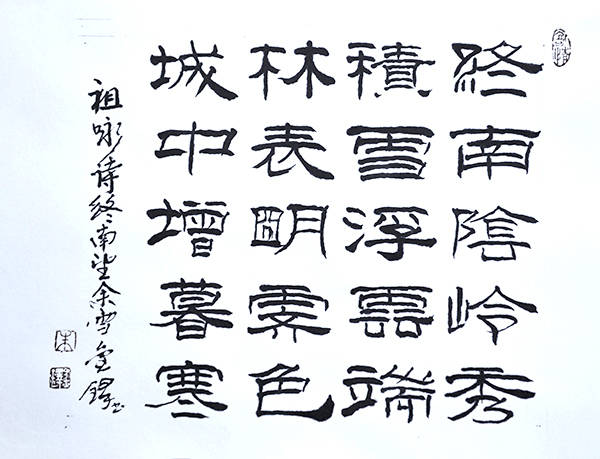 終南陰岭秀
積雪浮雲端
林表明霽色
城中增暮寒
祖咏诗终南望余雪金鐸书